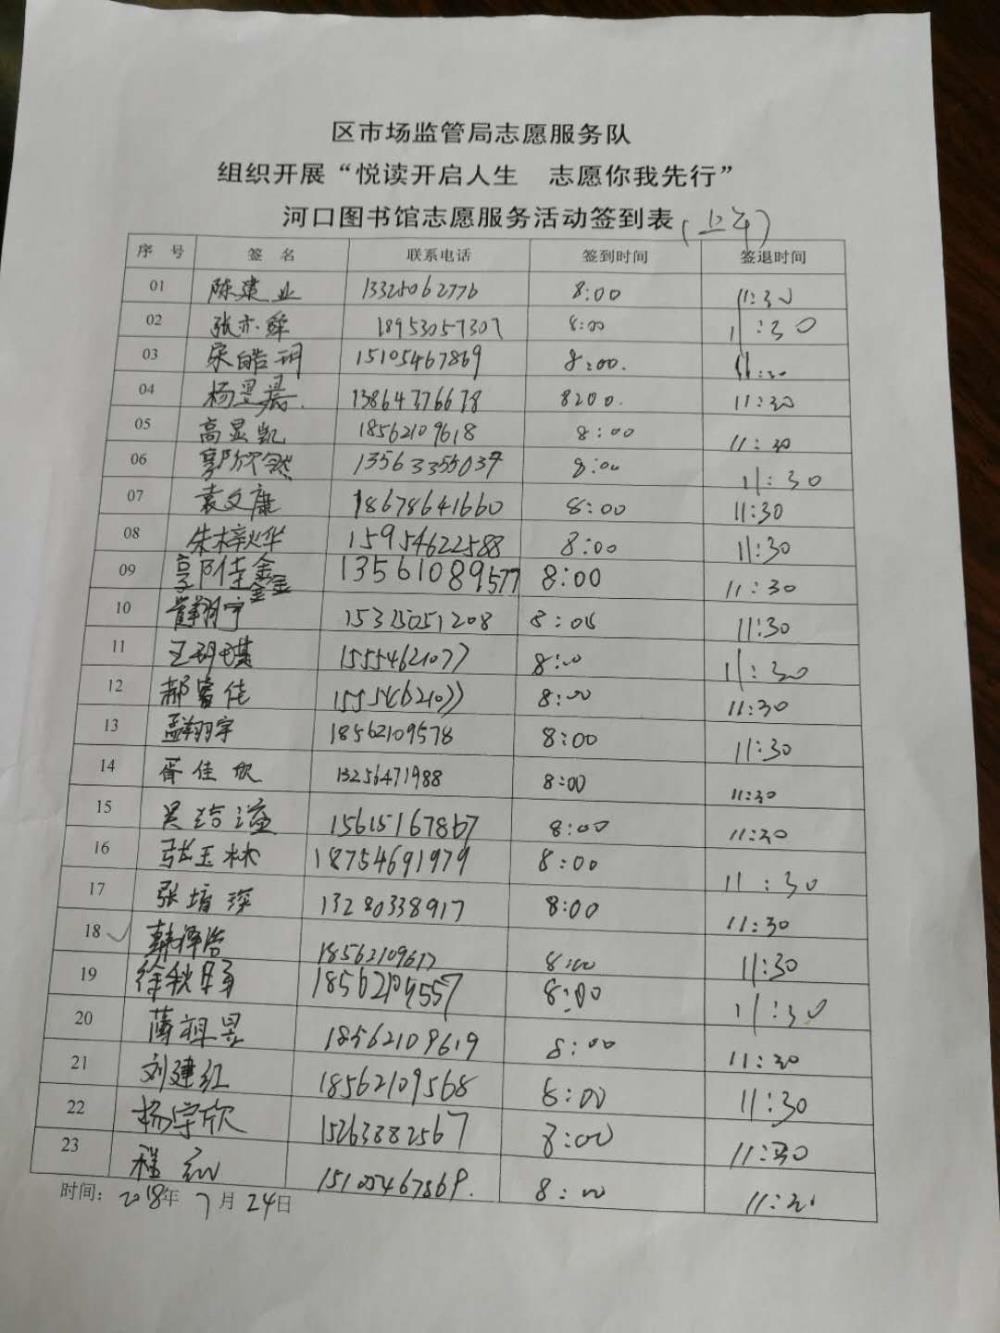 区市场监管局志愿服务队
组织开展“悦读开启人生 志愿你我先行”
河口图书馆志愿服务活动签到表(上午)
序 号 签 名 联系电话 签到时间 签退时间
01 陈建业 13325062776 8:00 11:30
02 张亦舜 18953057307 8:00 11:30
03 宋皓玥 15105467869 8:00. 11:30
04 杨昱 13864776678 8:00. 11:30
05 高显凯 18562109618 8:00 11:30
06 郭欣然 13563355037 8:00 11:30
07 袁文康 18678641660 8:00 11:30
08 朱梓烨 15954622588 8:00 11:30
09 郭佳鑫 13561089577 8:00 11:30
10 翔宇 15325051208 8:00 11:30
11 王玥琪 15554621077 8:00 11:30
12 郝睿佳 15554621077 8:00 11:30
13 孟翔宇 18562109578 8:00 11:30
14 胥佳欣 13256471988 8:00 11:30
15 吴浩溢 15615167867 8:00 11:30
16 张玉林 18754691979 8:00 11:30
17 张堉琛 13280338917 8:00 11:30
18 韩泽浩 18562109617 8:00 11:30
19 徐秋 18562109557 8:00 11:30
20 薄祖昱 18562109619 8:00 11:30
21 刘建红 18562109568 8:00 11:30
22 杨宇欣 15263882567 8:00 11:30
23 程 15105467869. 8:00 11:30
时间: 2018年 7 月 24日